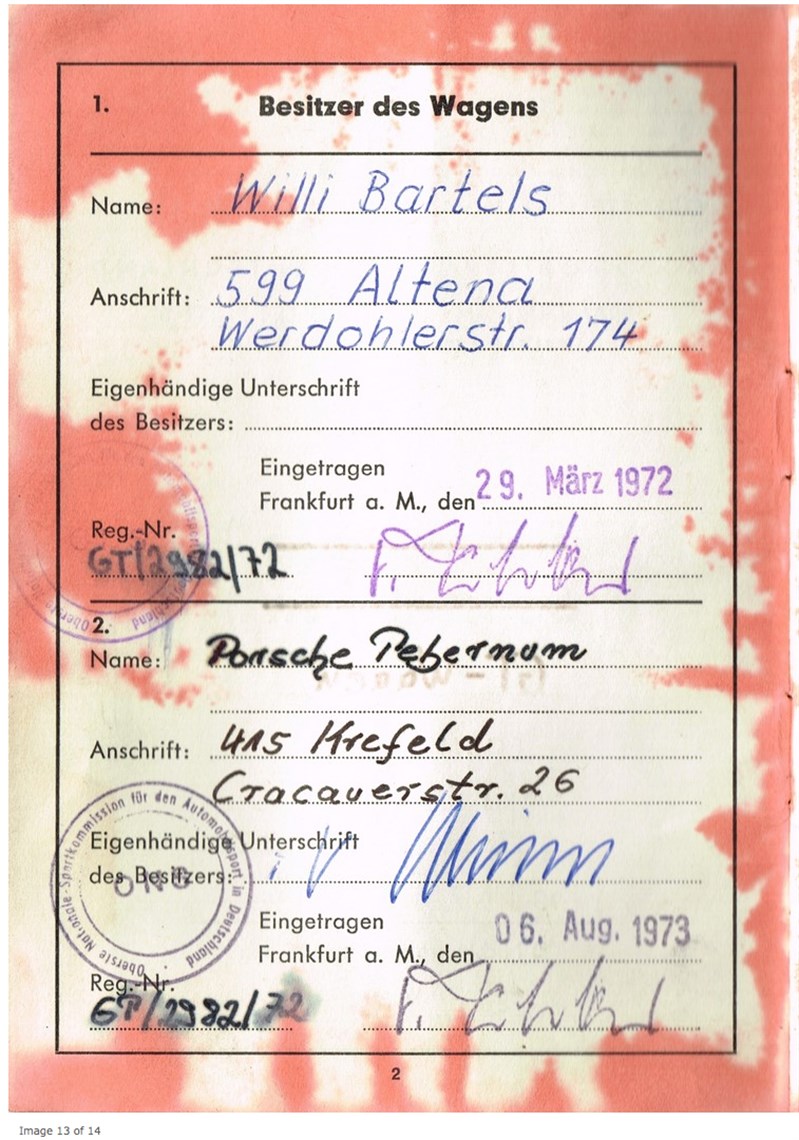 1. Besitzer des Wagens
Name: Willi Bartels
Anschrift: 599 Altena
Werdohlerstr. 174
Eigenhändige Unterschrift
des Besitzers:
Eingetragen
Frankfurt a. M., den 29. März 1972
Reg.-Nr.
GT/2982/72
2.
Name: Porsche Tebernum
Anschrift: 415 Krefeld
Cracauerstr. 26
Oberste Nationale Sportkommission für den Automobilsport in Deutschland
ONS
Eigenhändige Unterschrift
des Besitzers:
Eingetragen
Frankfurt a. M., den 06. Aug. 1973
Reg.-Nr.
GT/2982/72
2
Image 13 of 14